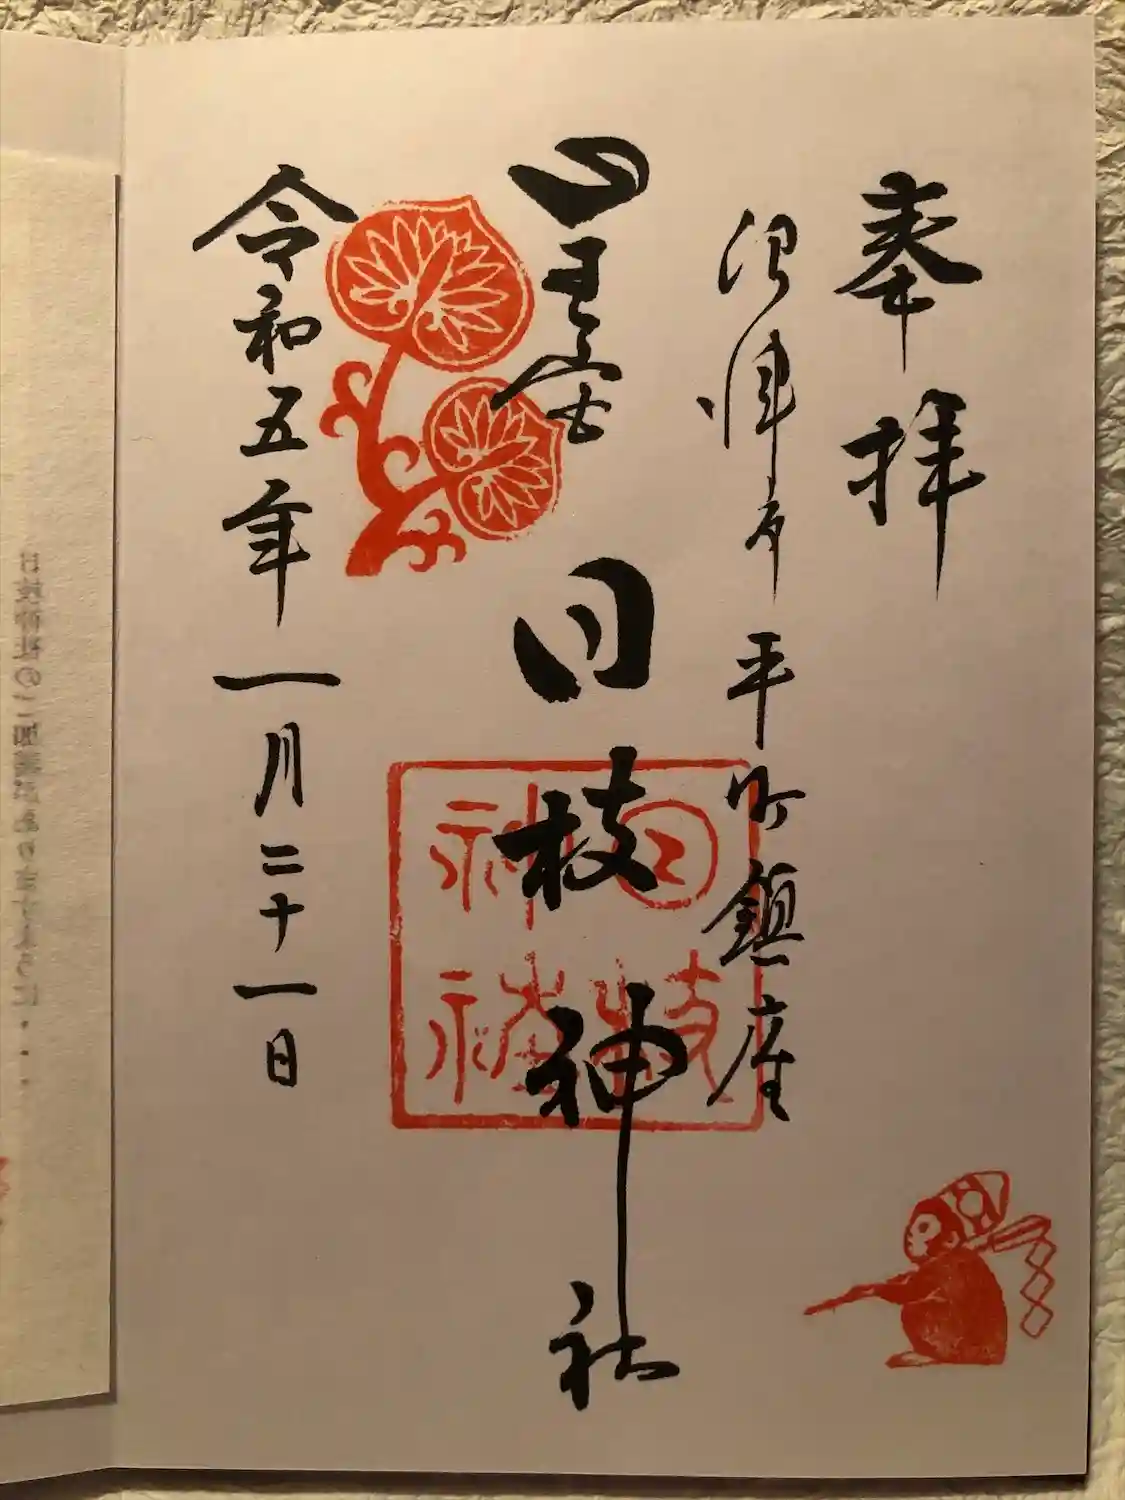 奉拝
沼津市平町鎮座
山王
日枝神社
日枝神社
令和五年一月二十一日